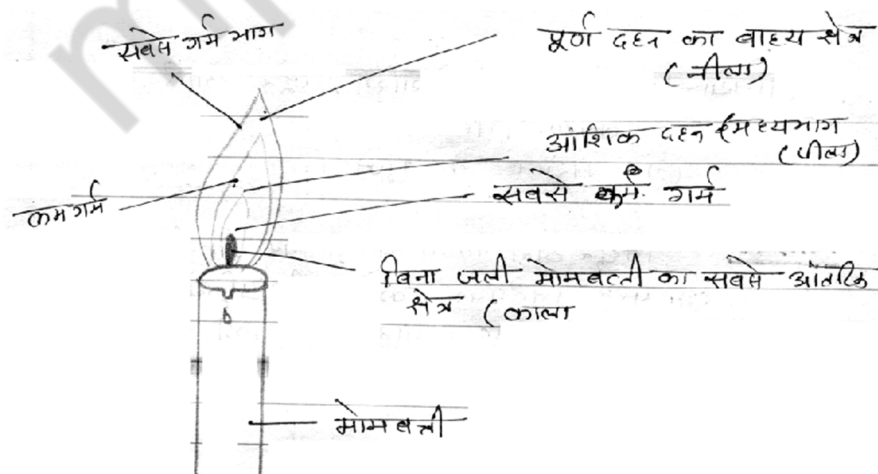 सबसे गर्म भाग
पूर्ण दहन का बाह्य क्षेत्र
(नीला)
आंशिक दहन (मध्यभाग
(पीला)
कम गर्म
सबसे कम गर्म
बिना जली मोमबत्ती का सबसे आंतरिक
क्षेत्र (काला
मोमबत्ती